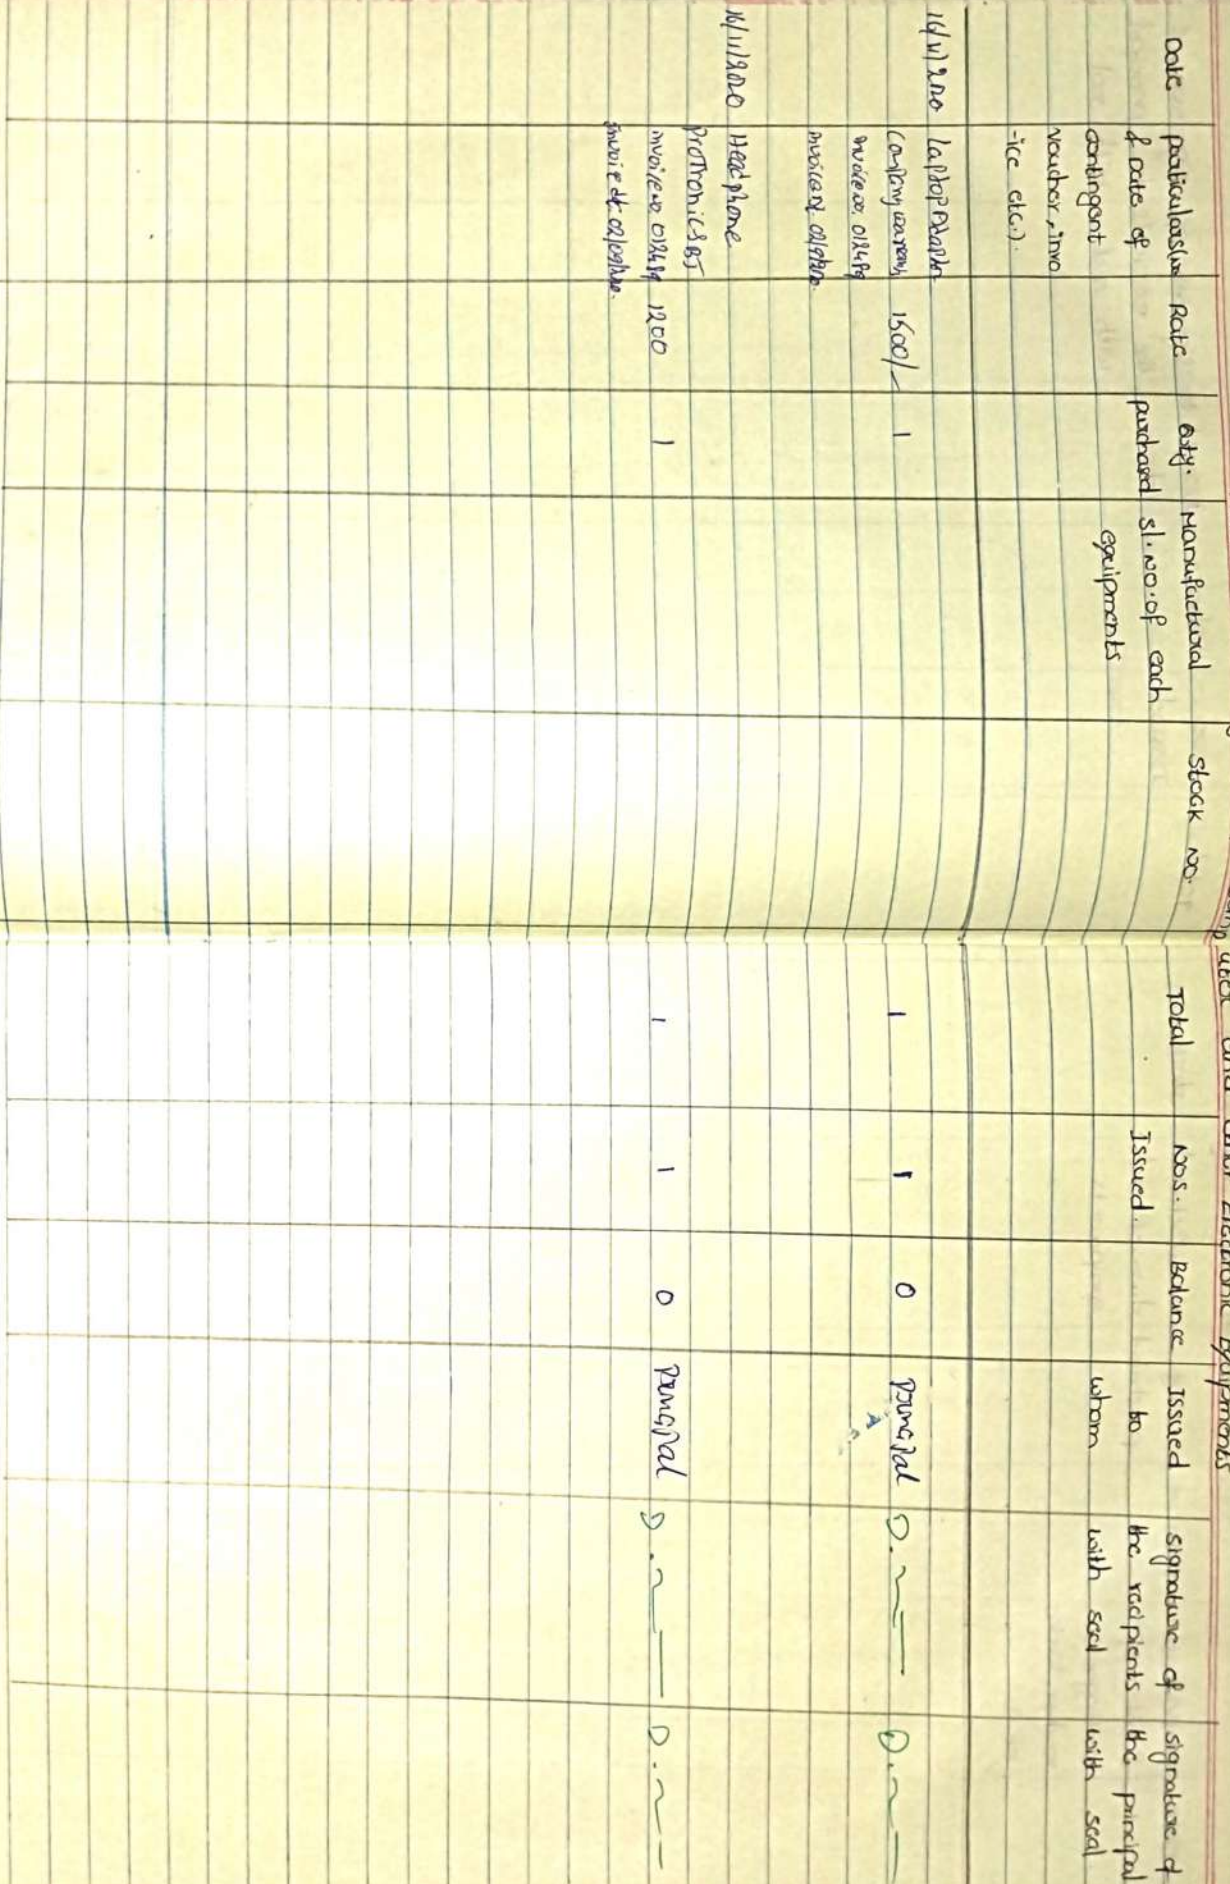 and other Electronic Equipments
Date
particulars
& Date of
contingent
voucher, invo
-ice etc.)
Rate
Qty.
purchased
Manufactural
sl.NO.of each
equipments
Stock No.
Total
Nos.
Issued.
Balance
Issued
to
whom
signature of
the recipients
with seal
signature of
the principal
with seal
16/11/2020
Laptop Adaptor
Company warranty
invoice no. 012489
1500/-
1
1
1
0
Principal
16/11/2020
Headphone
invoice no. 012489
invoice dt. 02/09/2020.
1200
1
1
1
0
Principal